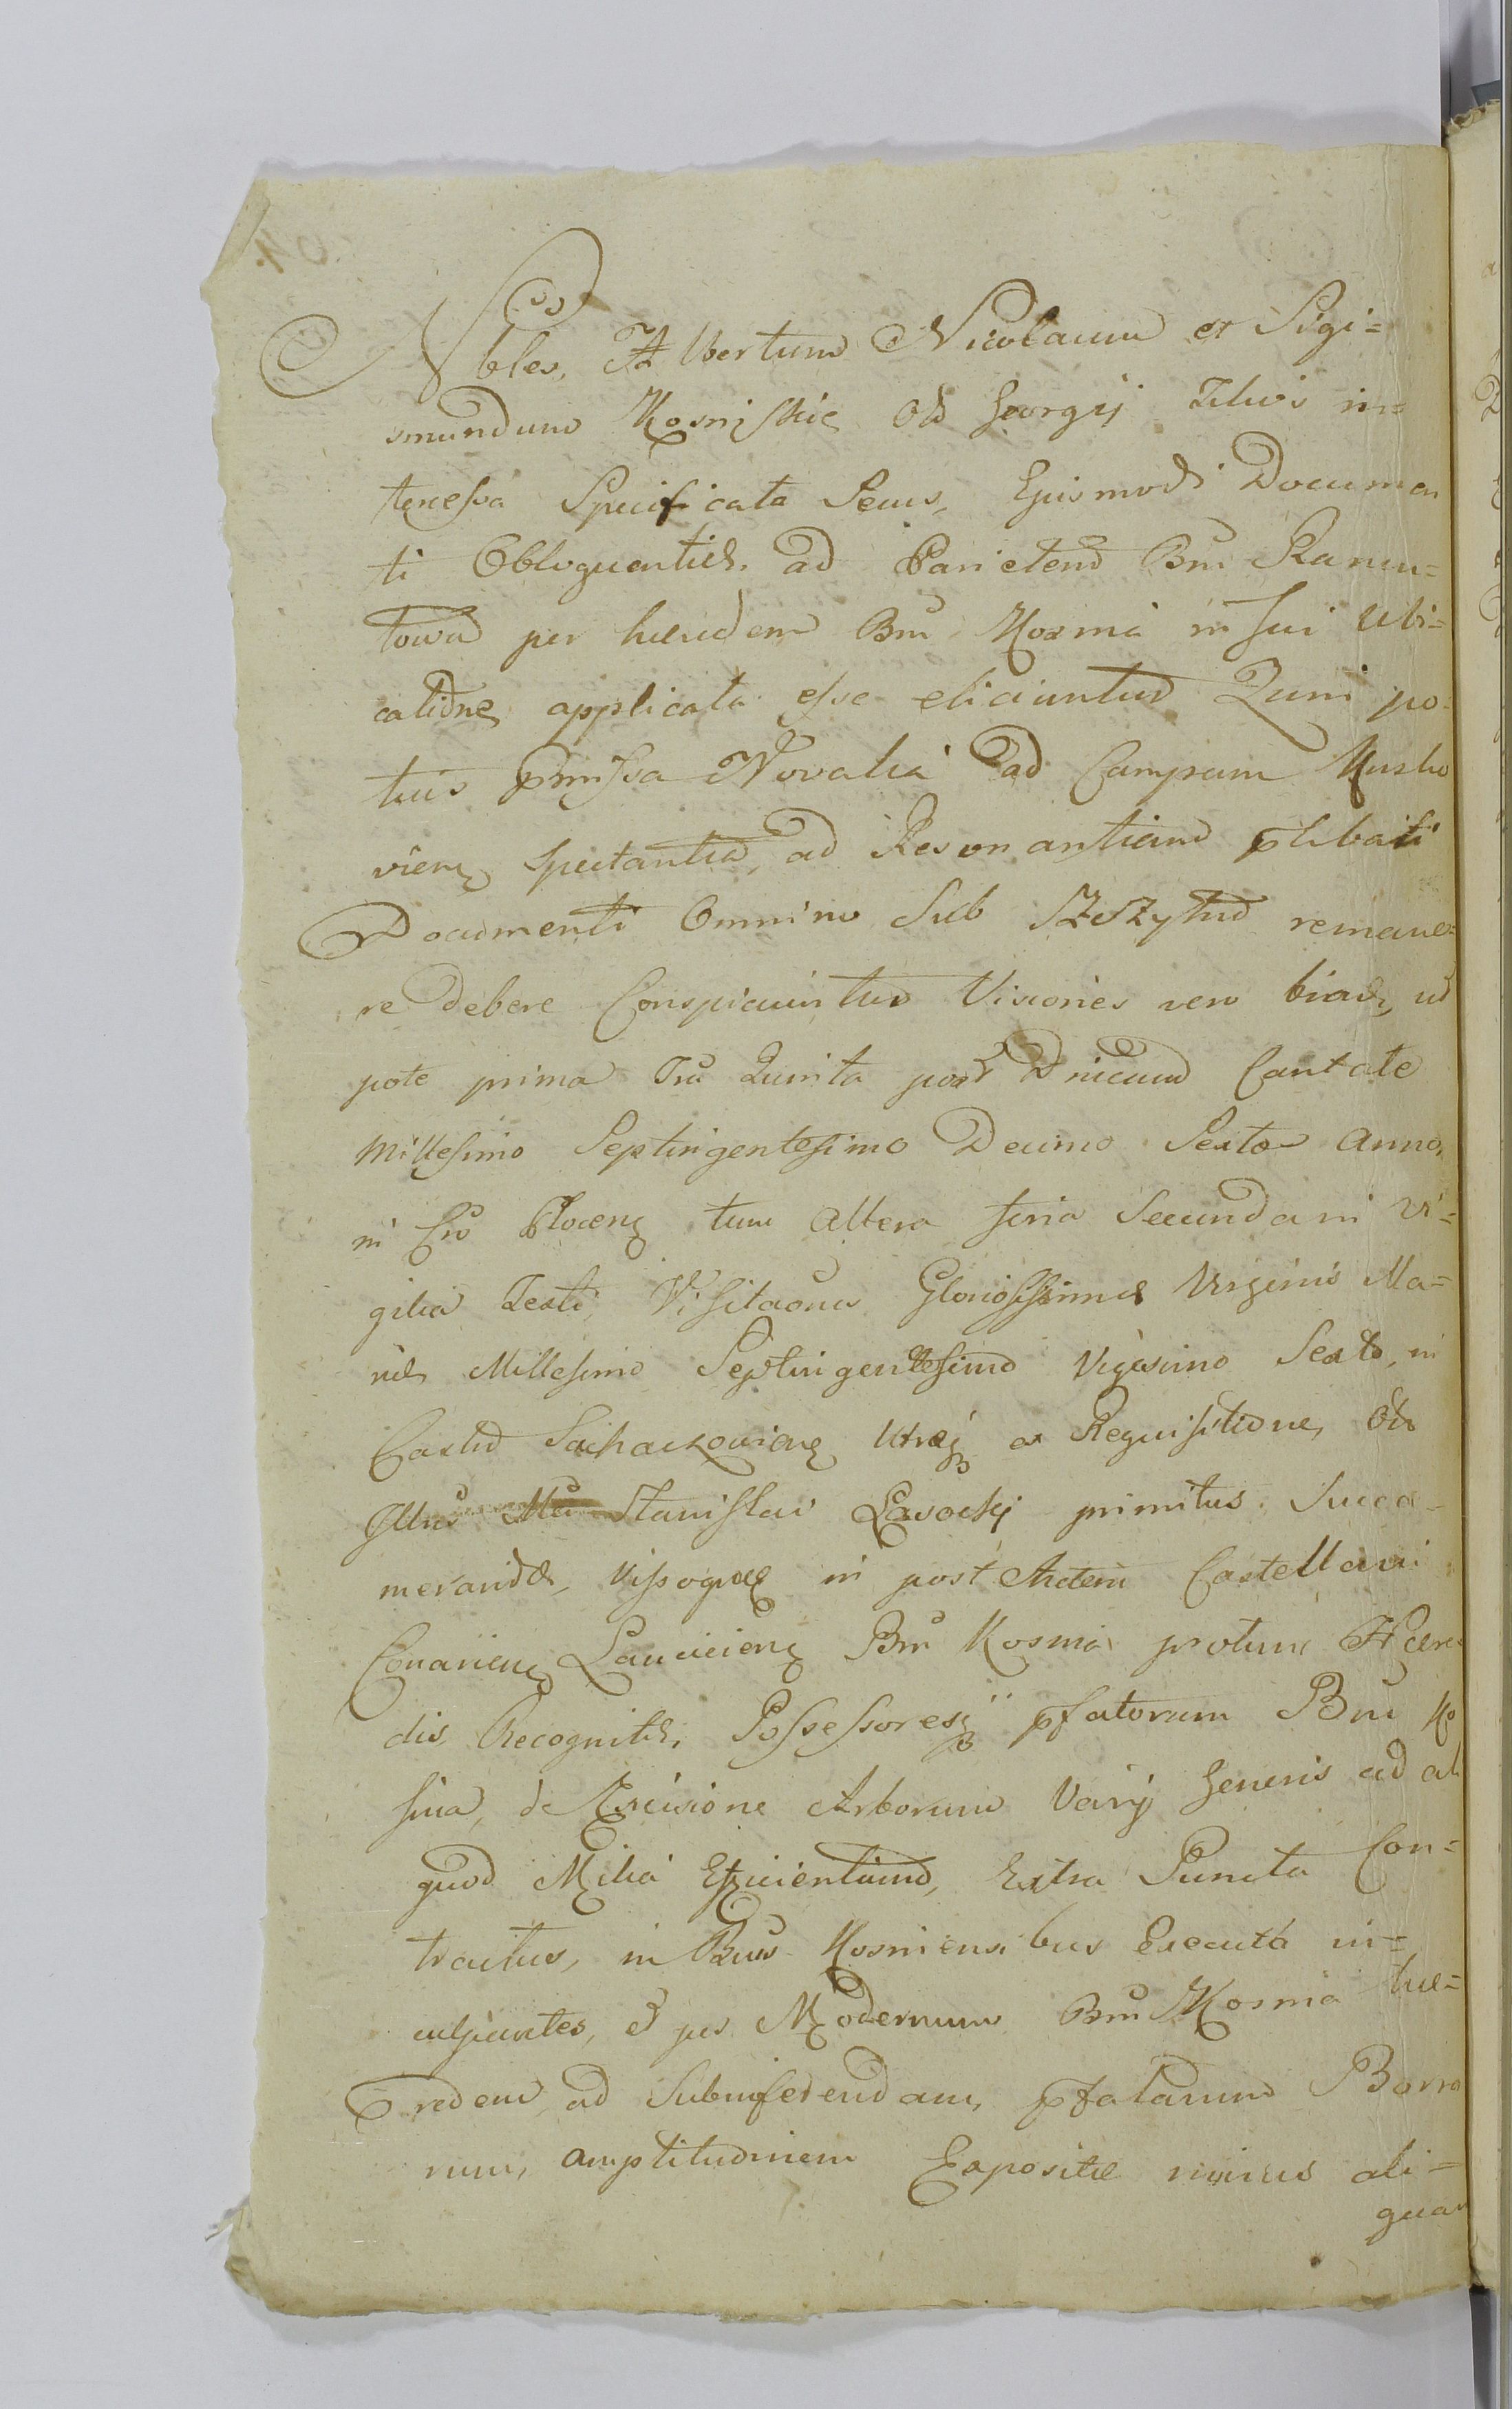 Nbles, Albertum Nicolaum et Sigi=
smundum Kosniskie Olim Georgij Filios in=
teressa Specificata Secus, Ejusmodi Documen
ti Obloquentiæ, ad Parietem Bnrũ Ramu=
towo per hæredem Bnrũ Kosmia in sui Ubi=
catione applicata esse eliciuntur Quin po=
tius pmissa Novalia ad Campum Muzko
viens spectantia, ad Resonantiam plibati
Documenti Omnino Sub Szszytno remane=
re debere Conspiciuntur Visiones vero binæ, ut
pote prima Fria Quinta post Dnicam Cantate
Millesimo Septingentesimo Decimo Sexto Anno,
in Cro Plocens tum Altera feria Secunda in Vi=
gilia Festi Visitaõnis Gloriosissimæ Virginis Ma=
riæ Millesimo Septingentesimo Vigesimo Sexto, in
Castro Sochaczoviens Utraq ex Requisitione, Olim
Stanislai Lasocki primitus Succa=
meraridæ, Vissogrod in post Autem Castellani
Conariens Lanciciens Bnrũ Kosmia protunc Hære
dis Recognitæ, Possessoresq pfatorum Bnrũ Ko
smia, de Excisione Arborum Varij Generis ad ali
quod Milia Efficientium, Extra Puncta Con=
tractus, in Bnis Kosmiensibus Executa in=
culpantes, et per Modernum Bnrũ Kosmia hæ=
redem ad Subinferendam, pfatarum Borra
rum, amplitudinem Expositæ minus ali=
quam